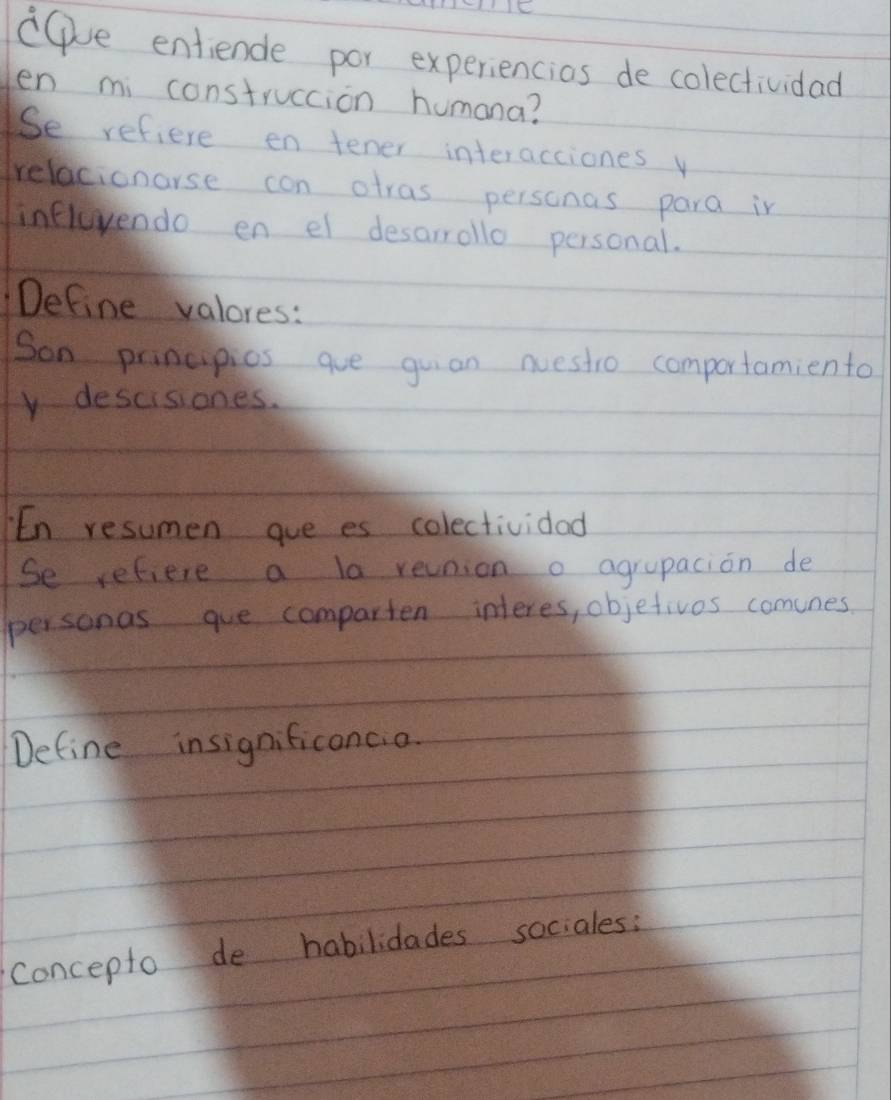 ¿Que entiende por experiencias de colectividad
en mi construcción humana?
Se refiere en tener interacciones y
relacionarse con otras personas para ir
influyendo en el desarrollo personal.
Define valores:
Son principios que guian nuestro comportamiento
y descisiones.
En resumen que es colectividad
Se refiere a la reunion o agrupación de
personas que comparten interes, objetivos comunes.
Define insignificancia.
concepto de habilidades sociales: